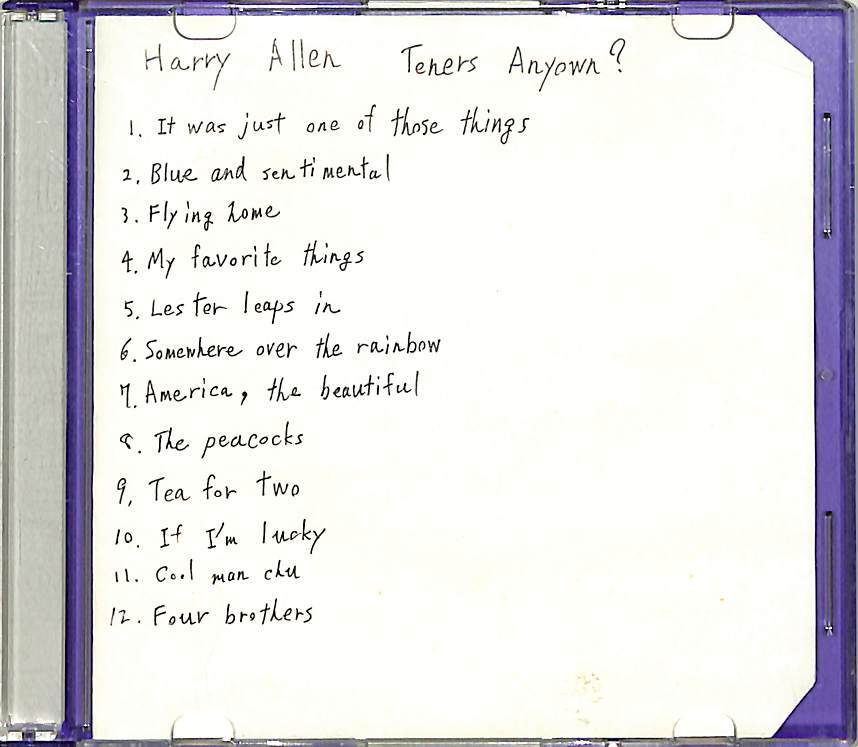 Harry Allen Teners Anyown?
1. It was just one of those things
2. Blue and sentimental
3. Flying home
4. My favorite things
5. Lester leaps in
6. Somewhere over the rainbow
7. America, the beautiful
8. The peacocks
9. Tea for two
10. If I'm lucky
11. Cool man chu
12. Four brothers